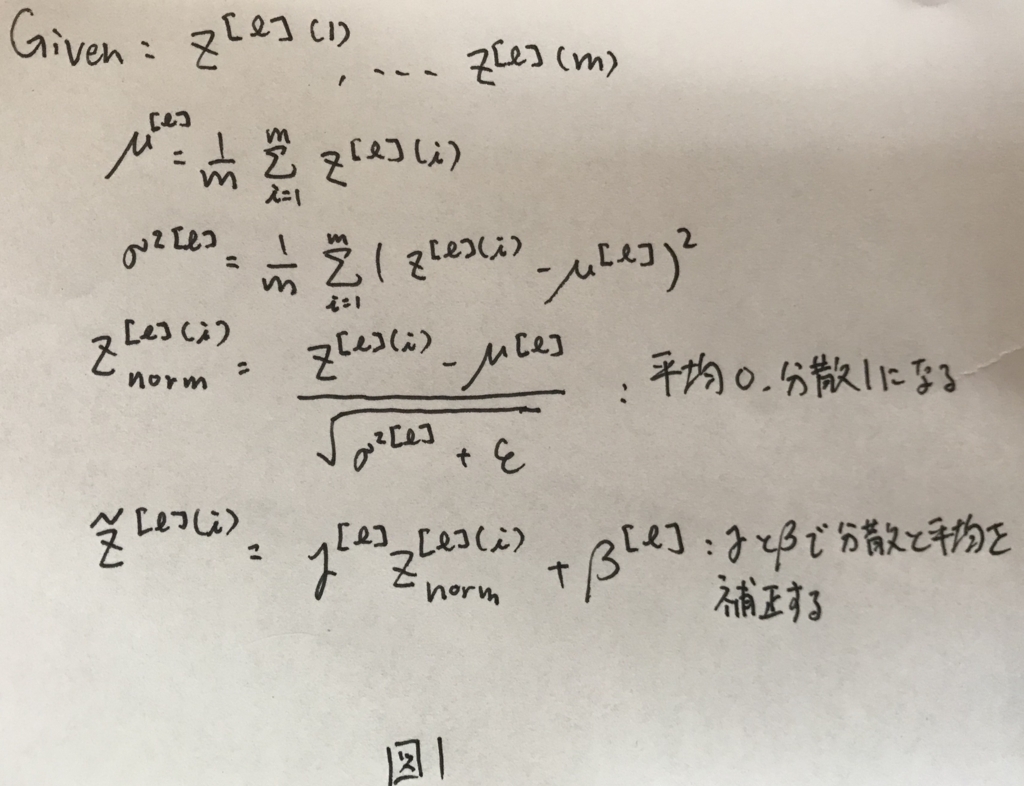 Given: z^{[l](1)}, ... z^{[l](m)}
μ^{[l]} = \frac{1}{m} \sum_{i=1}^{m} z^{[l](i)}
σ^{2[l]} = \frac{1}{m} \sum_{i=1}^{m} ( z^{[l](i)} - μ^{[l]} )^2
z_{norm}^{[l](i)} = \frac{z^{[l](i)} - μ^{[l]}}{\sqrt{σ^{2[l]} + ε}} : 平均0.分散1になる
\tilde{z}^{[l](i)} = γ^{[l]} z_{norm}^{[l](i)} + β^{[l]} : γとβで分散と平均を
補正する
図1